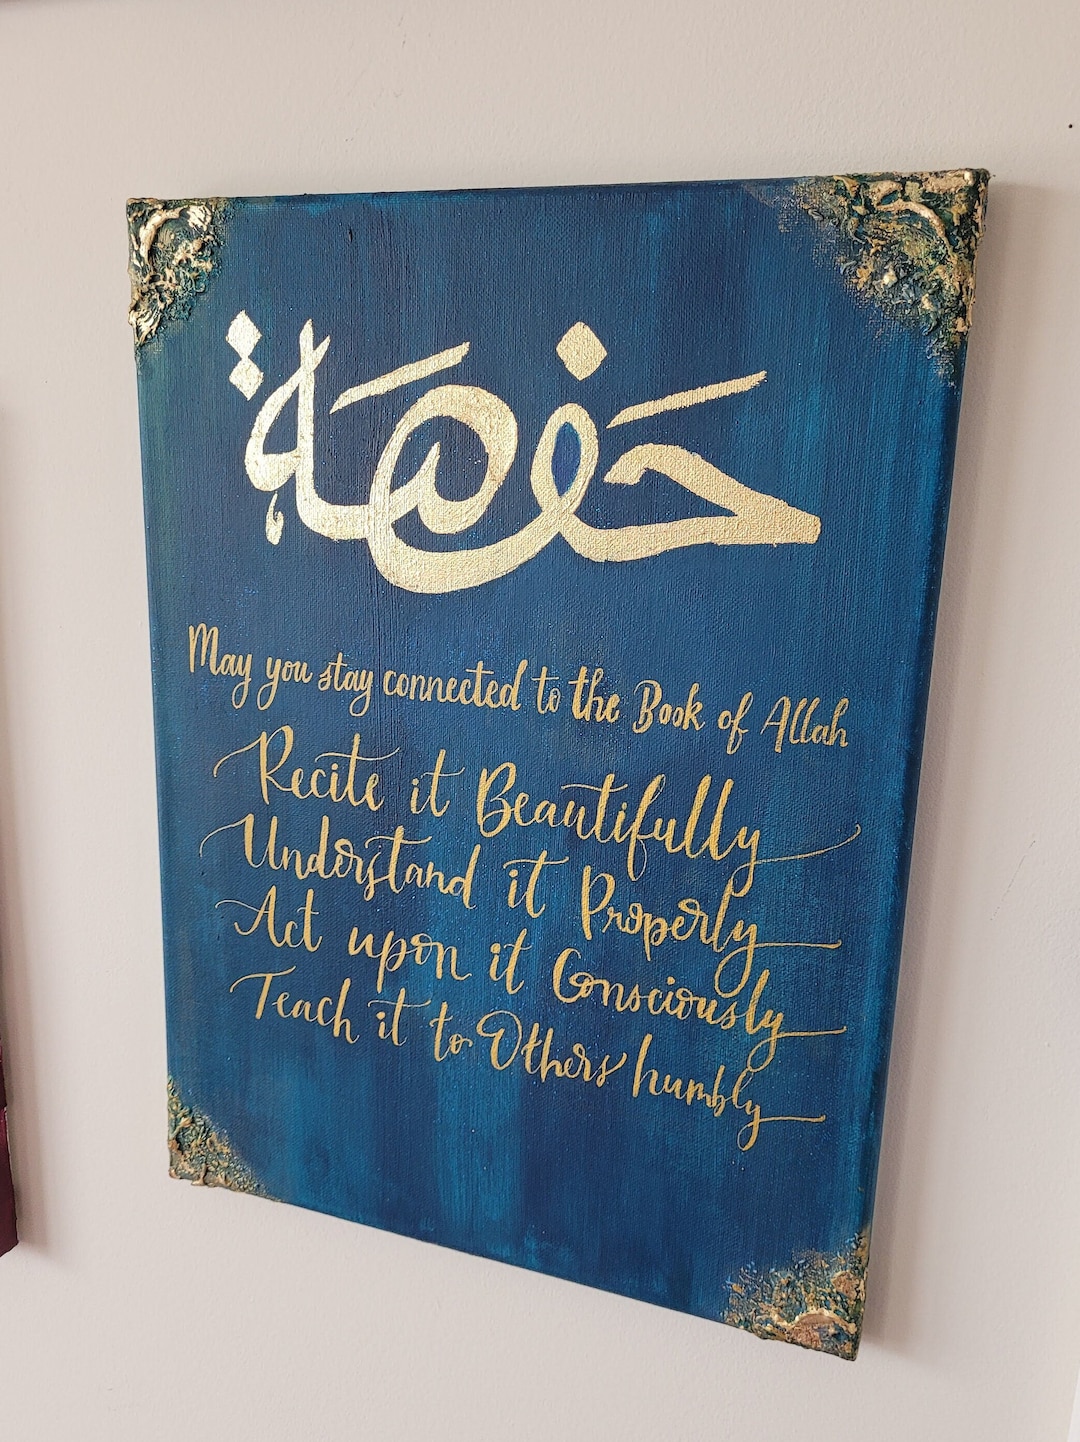 حفصة
May you stay connected to the Book of Allah
Recite it Beautifully
Understand it Properly
Act upon it Consciously
Teach it to Others humbly